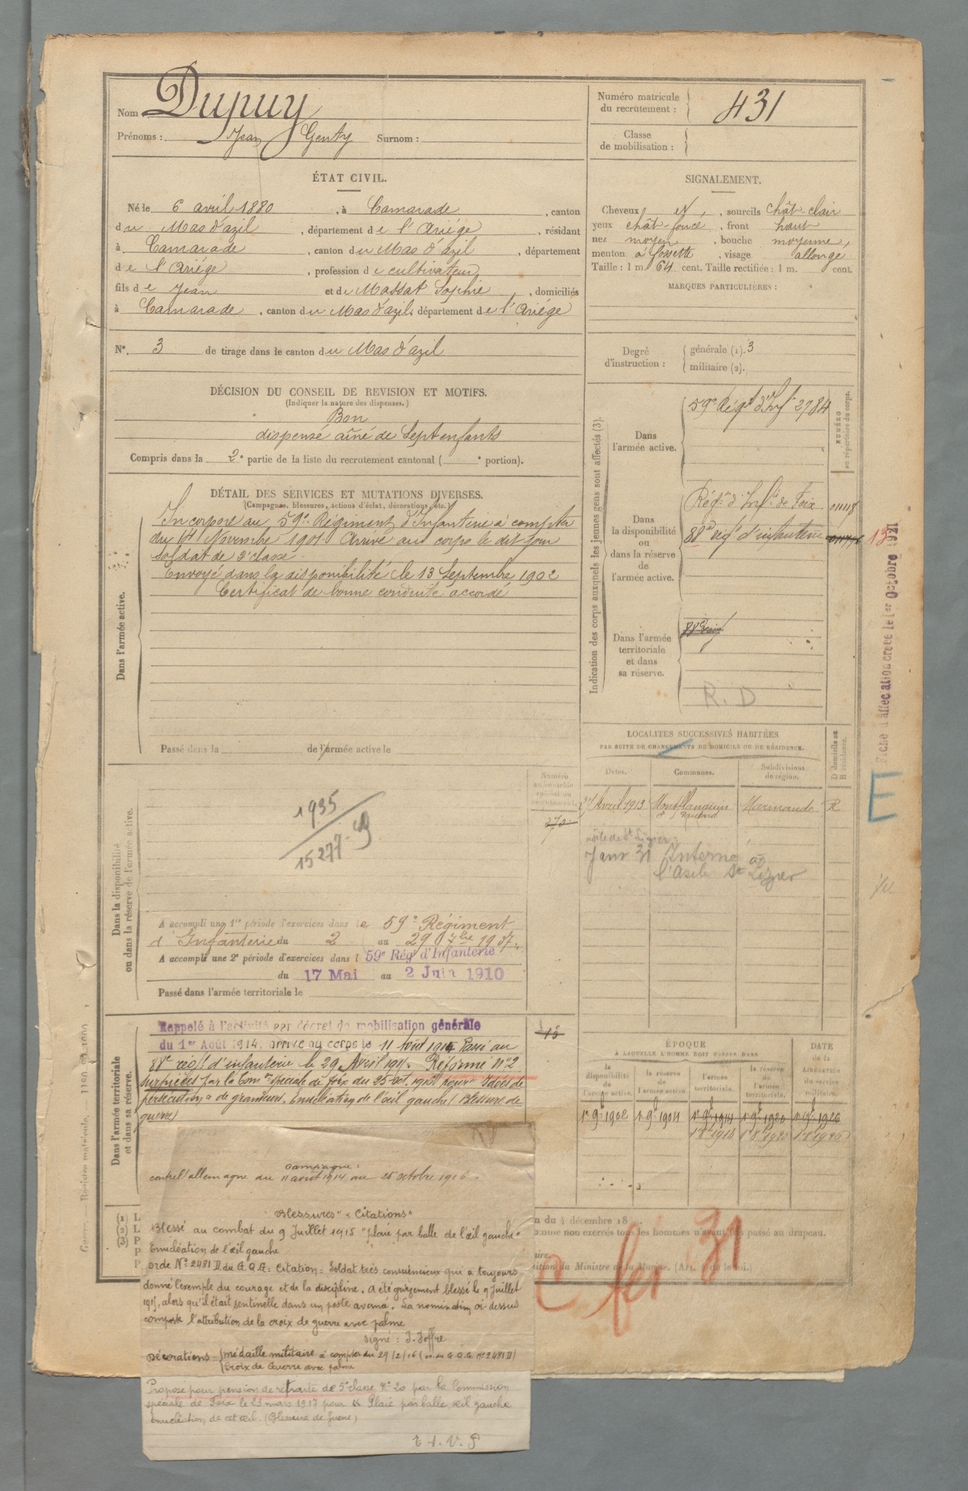 Nom Dupuy
Prénoms : Jean Genty Surnom :
Numéro matricule
du recrutement : 431
Classe
de mobilisation :
ÉTAT CIVIL.
Né le 6 avril 1880, à Camarade, canton
du Mas d'azil, département de l'Ariége, résidant
à Camarade, canton du Mas d'azil, département
de l'Ariége, profession de cultivateur
fils de Jean et de Massat Sophie, domiciliés
à Camarade, canton du Mas d'azil, département de l'Ariége
N° 3 de tirage dans le canton du Mas d'azil
SIGNALEMENT.
Cheveux id, sourcils chât clair
yeux chât foncé, front haut
nez moyen, bouche moyenne,
menton à fossette, visage allongé
Taille : 1 m. 64 cent. Taille rectifiée : 1 m. cent.
MARQUES PARTICULIÈRES :
Degré
d'instruction :
générale (1). 3
militaire (2).
DÉCISION DU CONSEIL DE REVISION ET MOTIFS.
(Indiquer la nature des dispenses.)
Bon
dispensé aîné de Sept enfants
Compris dans la 2e partie de la liste du recrutement cantonal ( e portion).
DÉTAIL DES SERVICES ET MUTATIONS DIVERSES.
(Campagnes, blessures, actions d'éclat, décorations, etc.)
Dans l'armée active.
Incorporé au 59e Régiment d'Infanterie à compter
du 14 Novembre 1901 Arrivé au corps le dit jour
soldat de 2e classe.
Envoyé dans la disponibilité le 13 Septembre 1902
Certificat de bonne conduite accordé
Passé dans la de l'armée active le
Indication des corps auxquels les jeunes gens sont affectés (3).
NUMÉRO
au répertoire du corps.
Dans
l'armée active.
59e Régt d'Inf. 2784
Dans
la disponibilité
ou
dans la réserve
de
l'armée active.
Régt d'Infie de Foix
88e régt d'infanterie
Dans l'armée
territoriale
et dans
sa réserve.
R. D
Fiche d'affectation créée le 1er Octobre 1921
E
LOCALITÉS SUCCESSIVES HABITÉES
PAR SUITE DE CHANGEMENTS DE DOMICILE OU DE RÉSIDENCE.
Dates. Communes. Subdivisions
de région.
D domicile ou
R résidence.
Avril 1913 Marmande R
Janv 31 Interné à
l'Asile de St Lizier
Dans la disponibilité
ou dans la réserve de l'armée active.
1935
15277
A accompli une 1re période d'exercices dans le 59e Régiment
d'Infanterie du 2 au 29 Obre 1907
A accompli une 2e période d'exercices dans l 59e Rég d'Infanterie
du 17 Mai au 2 Juin 1910
Passé dans l'armée territoriale le
Dans l'armée territoriale
et dans sa réserve.
Rappelé à l'activité par décret de mobilisation générale
du 1er Août 1914, arrivé au corps le 11 Août 1914 Passé au
88e régt d'infanterie le 29 Avril 1915. Réformé n°2
par la Comon spéciale de Foix du 25 oct. 1916 pour
Enucléation de l'œil gauche (Blessure de
guerre)
ÉPOQUE
À LAQUELLE L'HOMME DOIT PASSER DANS
la
disponibilité
de
l'armée active.
la réserve
de
l'armée active
l'armée
territoriale.
la réserve
de
l'armée
territoriale.
DATE
de la
LIBÉRATION
du service
militaire.
1er 9bre 1902 1er 9bre 1904 1er 9bre 1914 1er 9bre 1920 1er 9bre 1926
campagne :
contre l'allemagne du 11 août 1914 au 25 octobre 1916
Blessures " " Citations "
Blessé au combat du 9 Juillet 1915 "plaie par balle de l'œil gauche"
Enucléation de l'œil gauche
ordre N° 2481 D du G.Q.G. Citation : Soldat très consciencieux qui a toujours
donné l'exemple du courage et de la discipline. A été grièvement blessé le 9 juillet
1915, alors qu'il était sentinelle dans un poste avancé. La nomination ci-dessus
comporte l'attribution de la croix de guerre avec palme
Signé : J. Joffre
Décorations : médaille militaire à compter du 29/2/16 ( G.Q.G n° 2481 D)
Croix de Guerre avec palme
Proposé pour pension de retraite de 5e classe N° 20 par la Commission
spéciale de Foix le 23 mars 1917 pour Plaie par balle œil gauche
énucléation de cet œil. (Blessure de guerre)
T. S. V. P
du 4 décembre 18
C fer 31